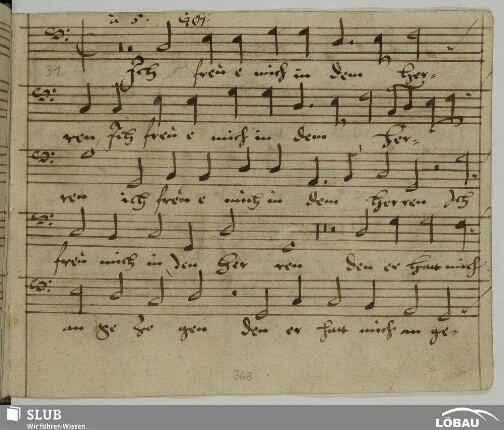 à 5.
31.
Ich freu e mich in dem Her-
ren Ich freu e mich in dem Her-
ren ich freu e mich in dem Herren Ich
freu mich in den Her ren den er hatt mich
an ge Zo gen den er hatt mich an ge-
363
SLUB
Wir führen Wissen.
LÖBAU